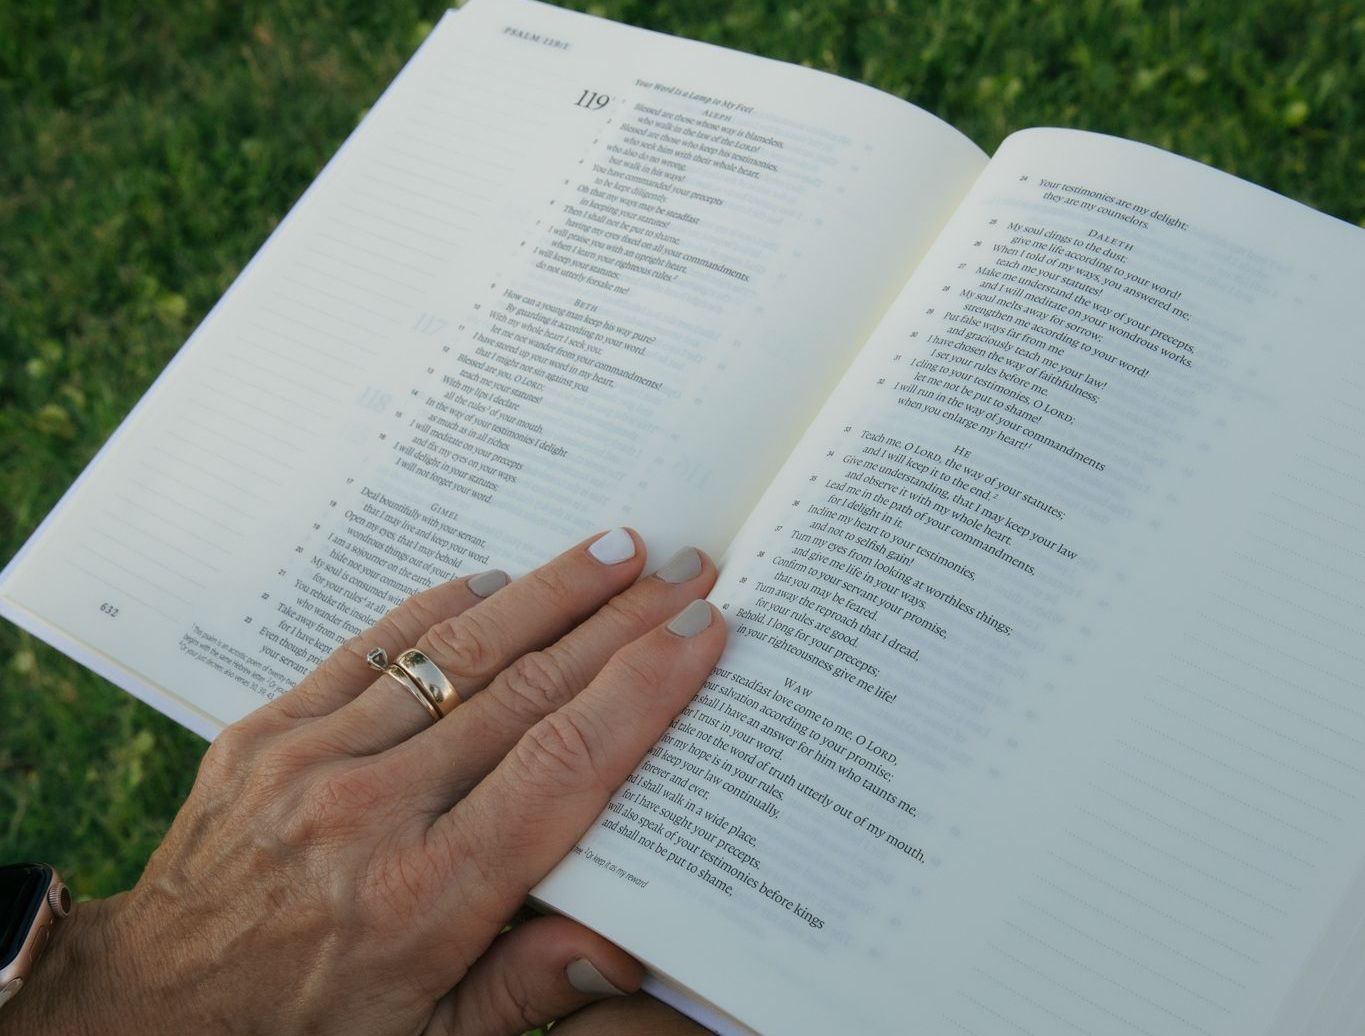 PSALM 119:1
Your Word Is a Lamp to My Feet
119
ALEPH
1 Blessed are those whose way is blameless,
who walk in the law of the LORD!
2 Blessed are those who keep his testimonies,
who seek him with their whole heart,
3 who also do no wrong,
but walk in his ways!
4 You have commanded your precepts
to be kept diligently.
5 Oh that my ways may be steadfast
in keeping your statutes!
6 Then I shall not be put to shame,
having my eyes fixed on all your commandments.
7 I will praise you with an upright heart,
when I learn your righteous rules.²
8 I will keep your statutes;
do not utterly forsake me!
BETH
9 How can a young man keep his way pure?
By guarding it according to your word.
10 With my whole heart I seek you;
let me not wander from your commandments!
11 I have stored up your word in my heart,
that I might not sin against you.
12 Blessed are you, O LORD;
teach me your statutes!
13 With my lips I declare
all the rules³ of your mouth.
14 In the way of your testimonies I delight
as much as in all riches.
15 I will meditate on your precepts
and fix my eyes on your ways.
16 I will delight in your statutes;
I will not forget your word.
GIMEL
17 Deal bountifully with your servant,
that I may live and keep your word.
18 Open my eyes, that I may behold
wondrous things out of your
19 I am a sojourner on the earth;
hide not your
20 My soul is consumed with
for your rules⁴ at all
21 You rebuke the
who wander from
22 Take away from
for I have kept
23 Even though
your servant
632
¹ This psalm is an acrostic poem of twenty-two
begins with the same Hebrew letter ² Or
³ Or your just decrees; also verses 30, 39, 43,
24 Your testimonies are my delight;
they are my counselors.
DALETH
25 My soul clings to the dust;
give me life according to your word!
26 When I told of my ways, you answered me;
teach me your statutes!
27 Make me understand the way of your precepts,
and I will meditate on your wondrous works.
28 My soul melts away for sorrow;
strengthen me according to your word!
29 Put false ways far from me
and graciously teach me your law!
30 I have chosen the way of faithfulness;
I set your rules before me.
31 I cling to your testimonies, O LORD;
let me not be put to shame!
32 I will run in the way of your commandments
when you enlarge my heart!¹
HE
33 Teach me, O LORD, the way of your statutes;
and I will keep it to the end.²
34 Give me understanding, that I may keep your law
and observe it with my whole heart.
35 Lead me in the path of your commandments,
for I delight in it.
36 Incline my heart to your testimonies,
and not to selfish gain!
37 Turn my eyes from looking at worthless things;
and give me life in your ways.
38 Confirm to your servant your promise,
that you may be feared.
39 Turn away the reproach that I dread,
for your rules are good.
40 Behold, I long for your precepts;
in your righteousness give me life!
WAW
your steadfast love come to me, O LORD,
your salvation according to your promise;
shall I have an answer for him who taunts me,
for I trust in your word.
take not the word of truth utterly out of my mouth,
for my hope is in your rules.
will keep your law continually,
forever and ever,
and I shall walk in a wide place,
for I have sought your precepts.
will also speak of your testimonies before kings
and shall not be put to shame,
² Or keep it as my reward